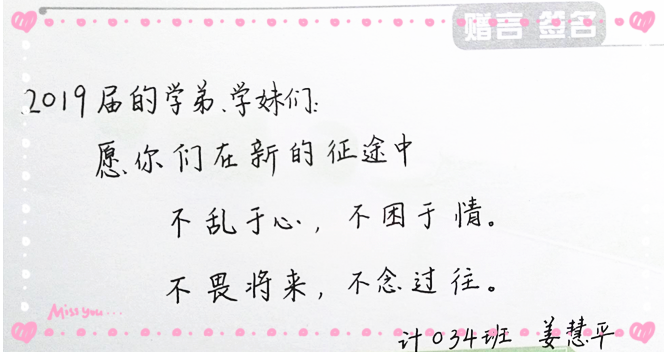 赠言 签名
2019届的学弟、学妹们:
愿你们在新的征途中
不乱于心，不困于情。
不畏将来，不念过往。
Miss you...
计034班 姜慧平